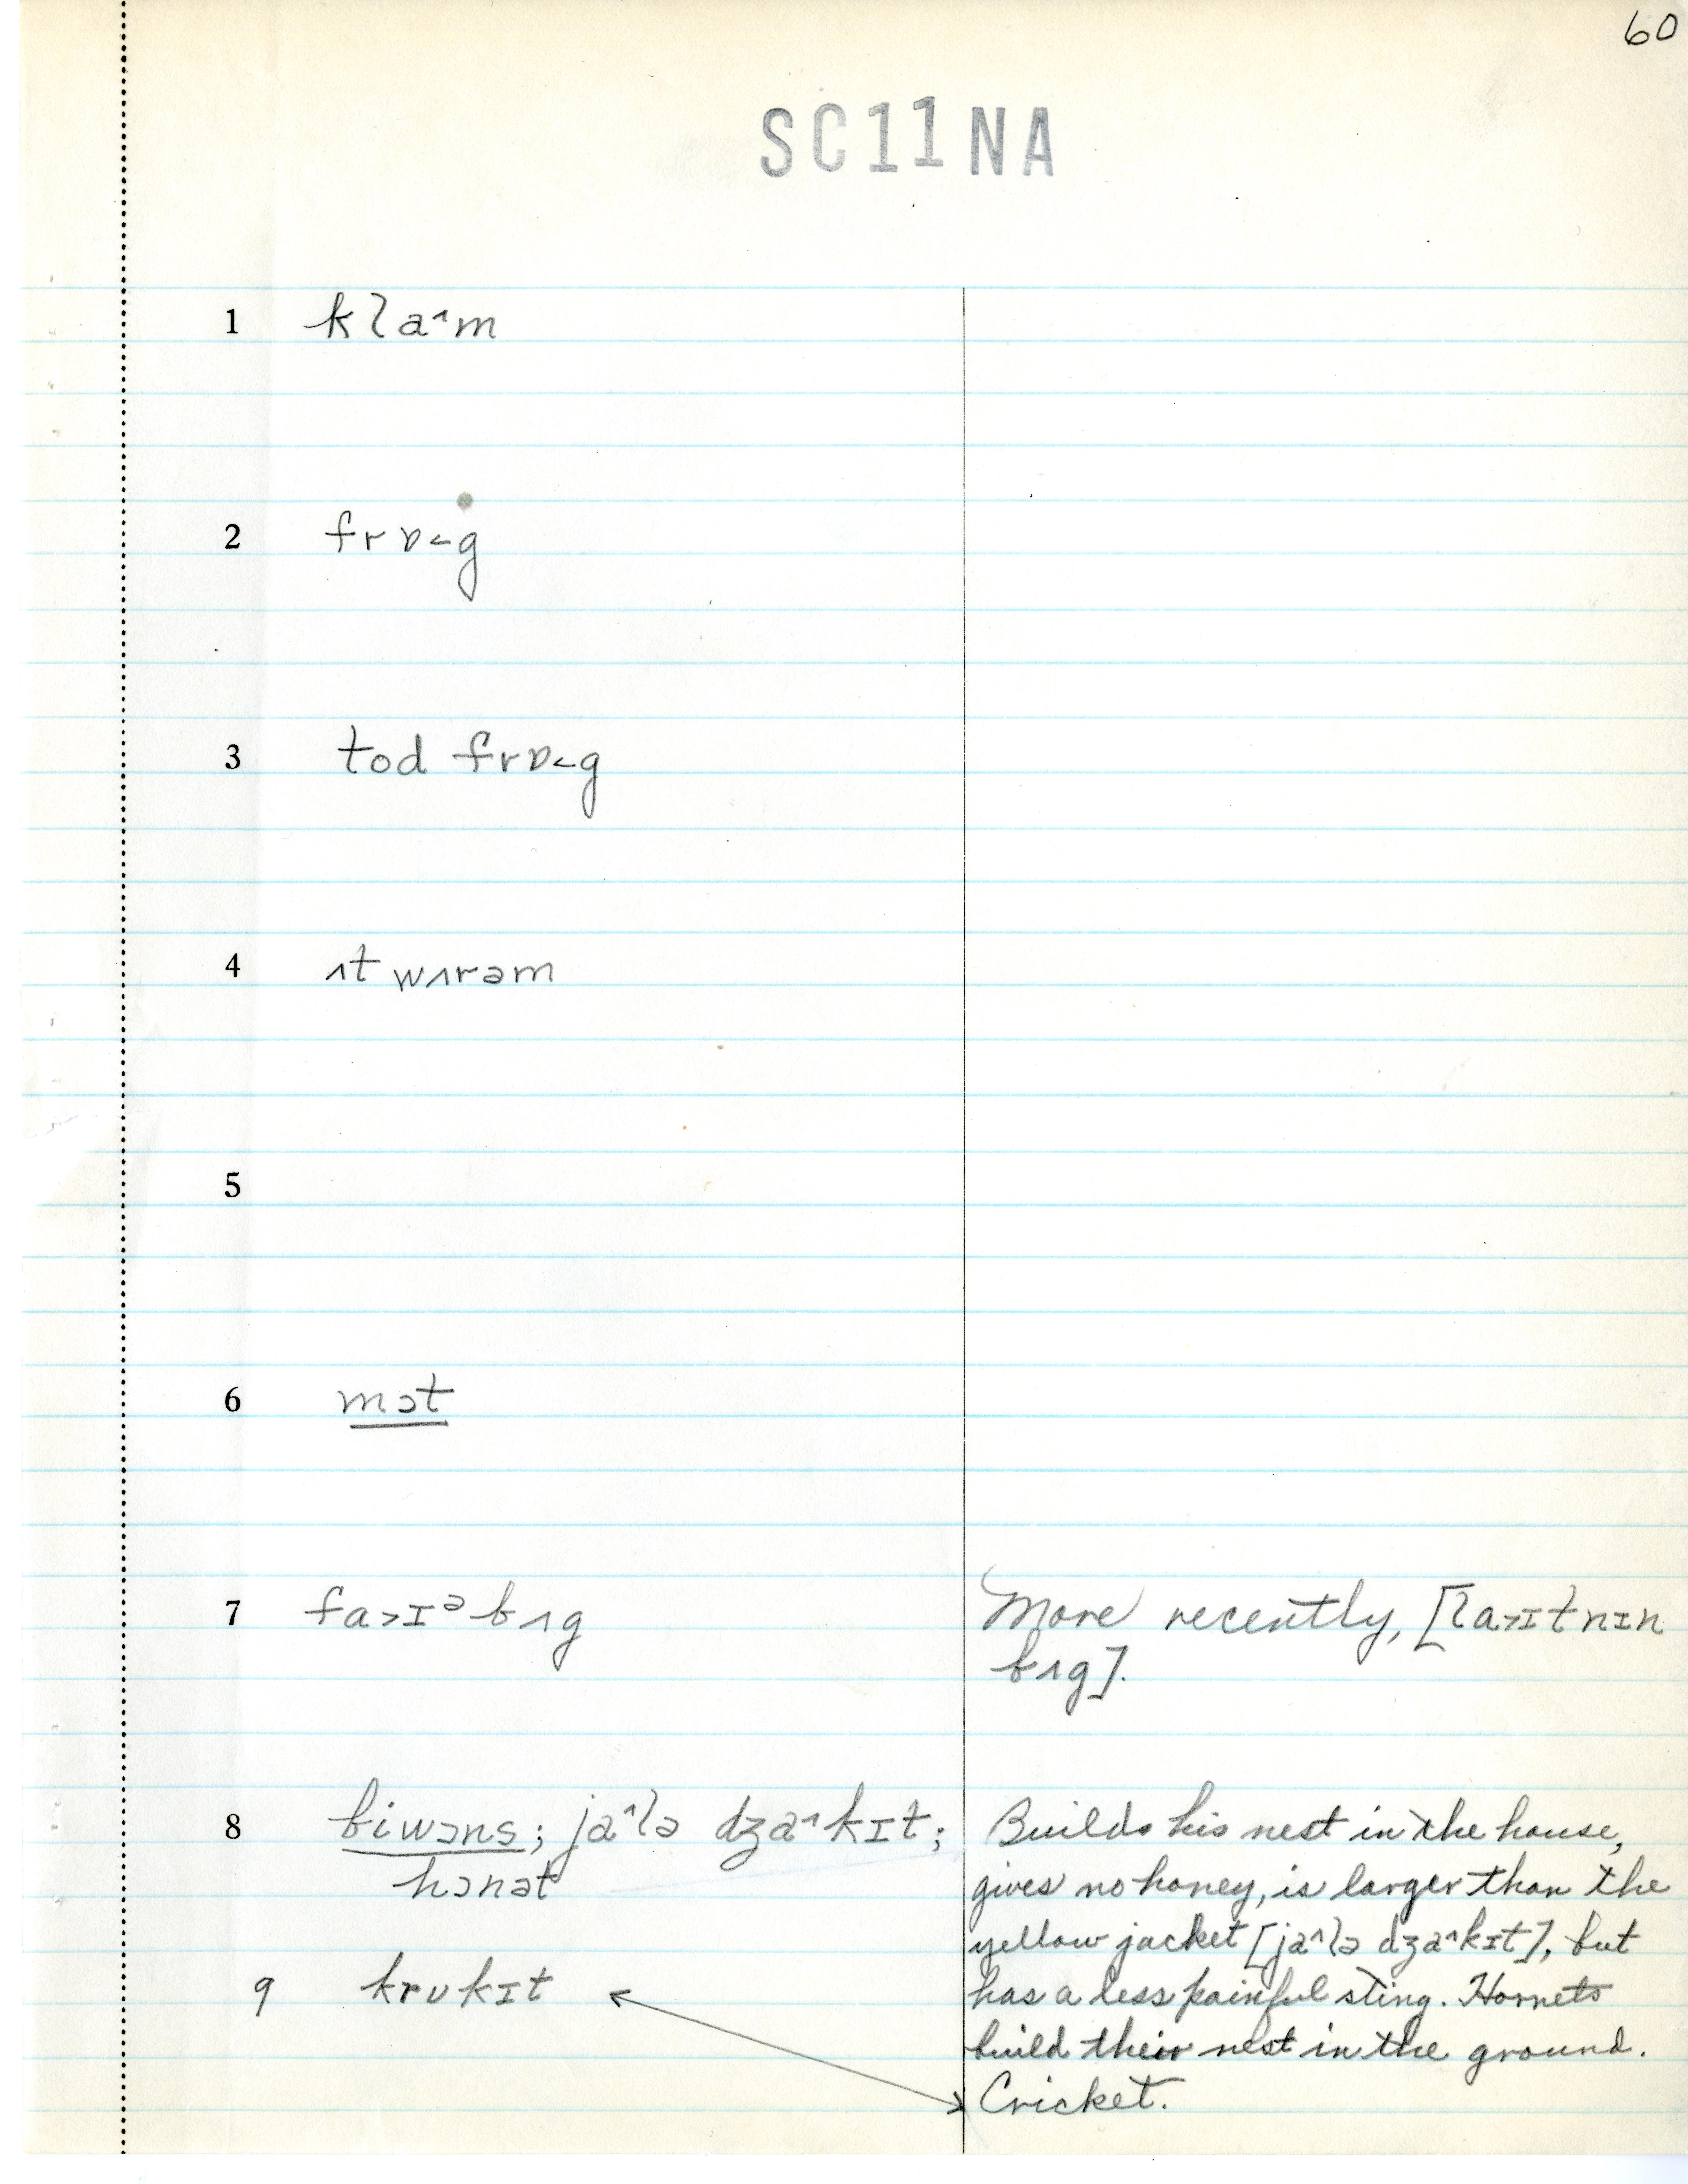 60
SC11NA
1 klaˆm
2 frɒ<g
3 tod frɒ<g
4 ʌt wʌrəm
5
6 mɔt
7 fa>ɪᵊ bʌg
More recently, [la>ɪtnɪn
bʌg].
8 biwɔns; jaˆlə dʒaˆkɪt;
hɔnət
Builds his nest in the house,
gives no honey, is larger than the
yellow jacket [jaˆlə dʒaˆkɪt], but
has a less painful sting. Hornets
build their nest in the ground.
9 krʊkɪt
Cricket.